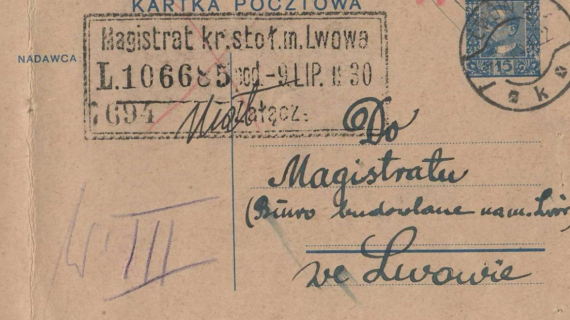 KARTKA POCZTOWA
NADAWCA
Magistrat kr. stoł. m. Lwowa
L.106685 pod. -9.LIP. 30
7694 załącz.
15
Do
Magistratu
(Biuro budowlane na m. Lwów
we Lwowie
W. III